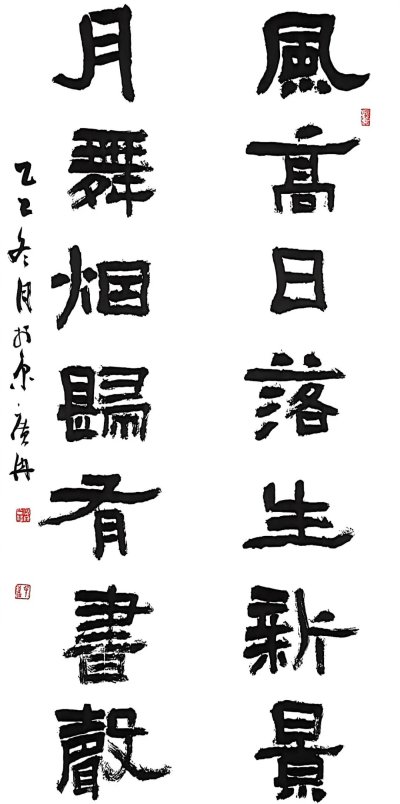 風高日落生新景
月舞烟歸有書聲
乙巳冬月於京廣冉